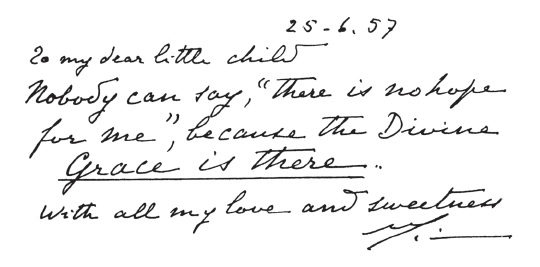 25-6.57
To my dear little child
Nobody can say, "there is no hope
for me", because the Divine
Grace is there..
With all my love and sweetness